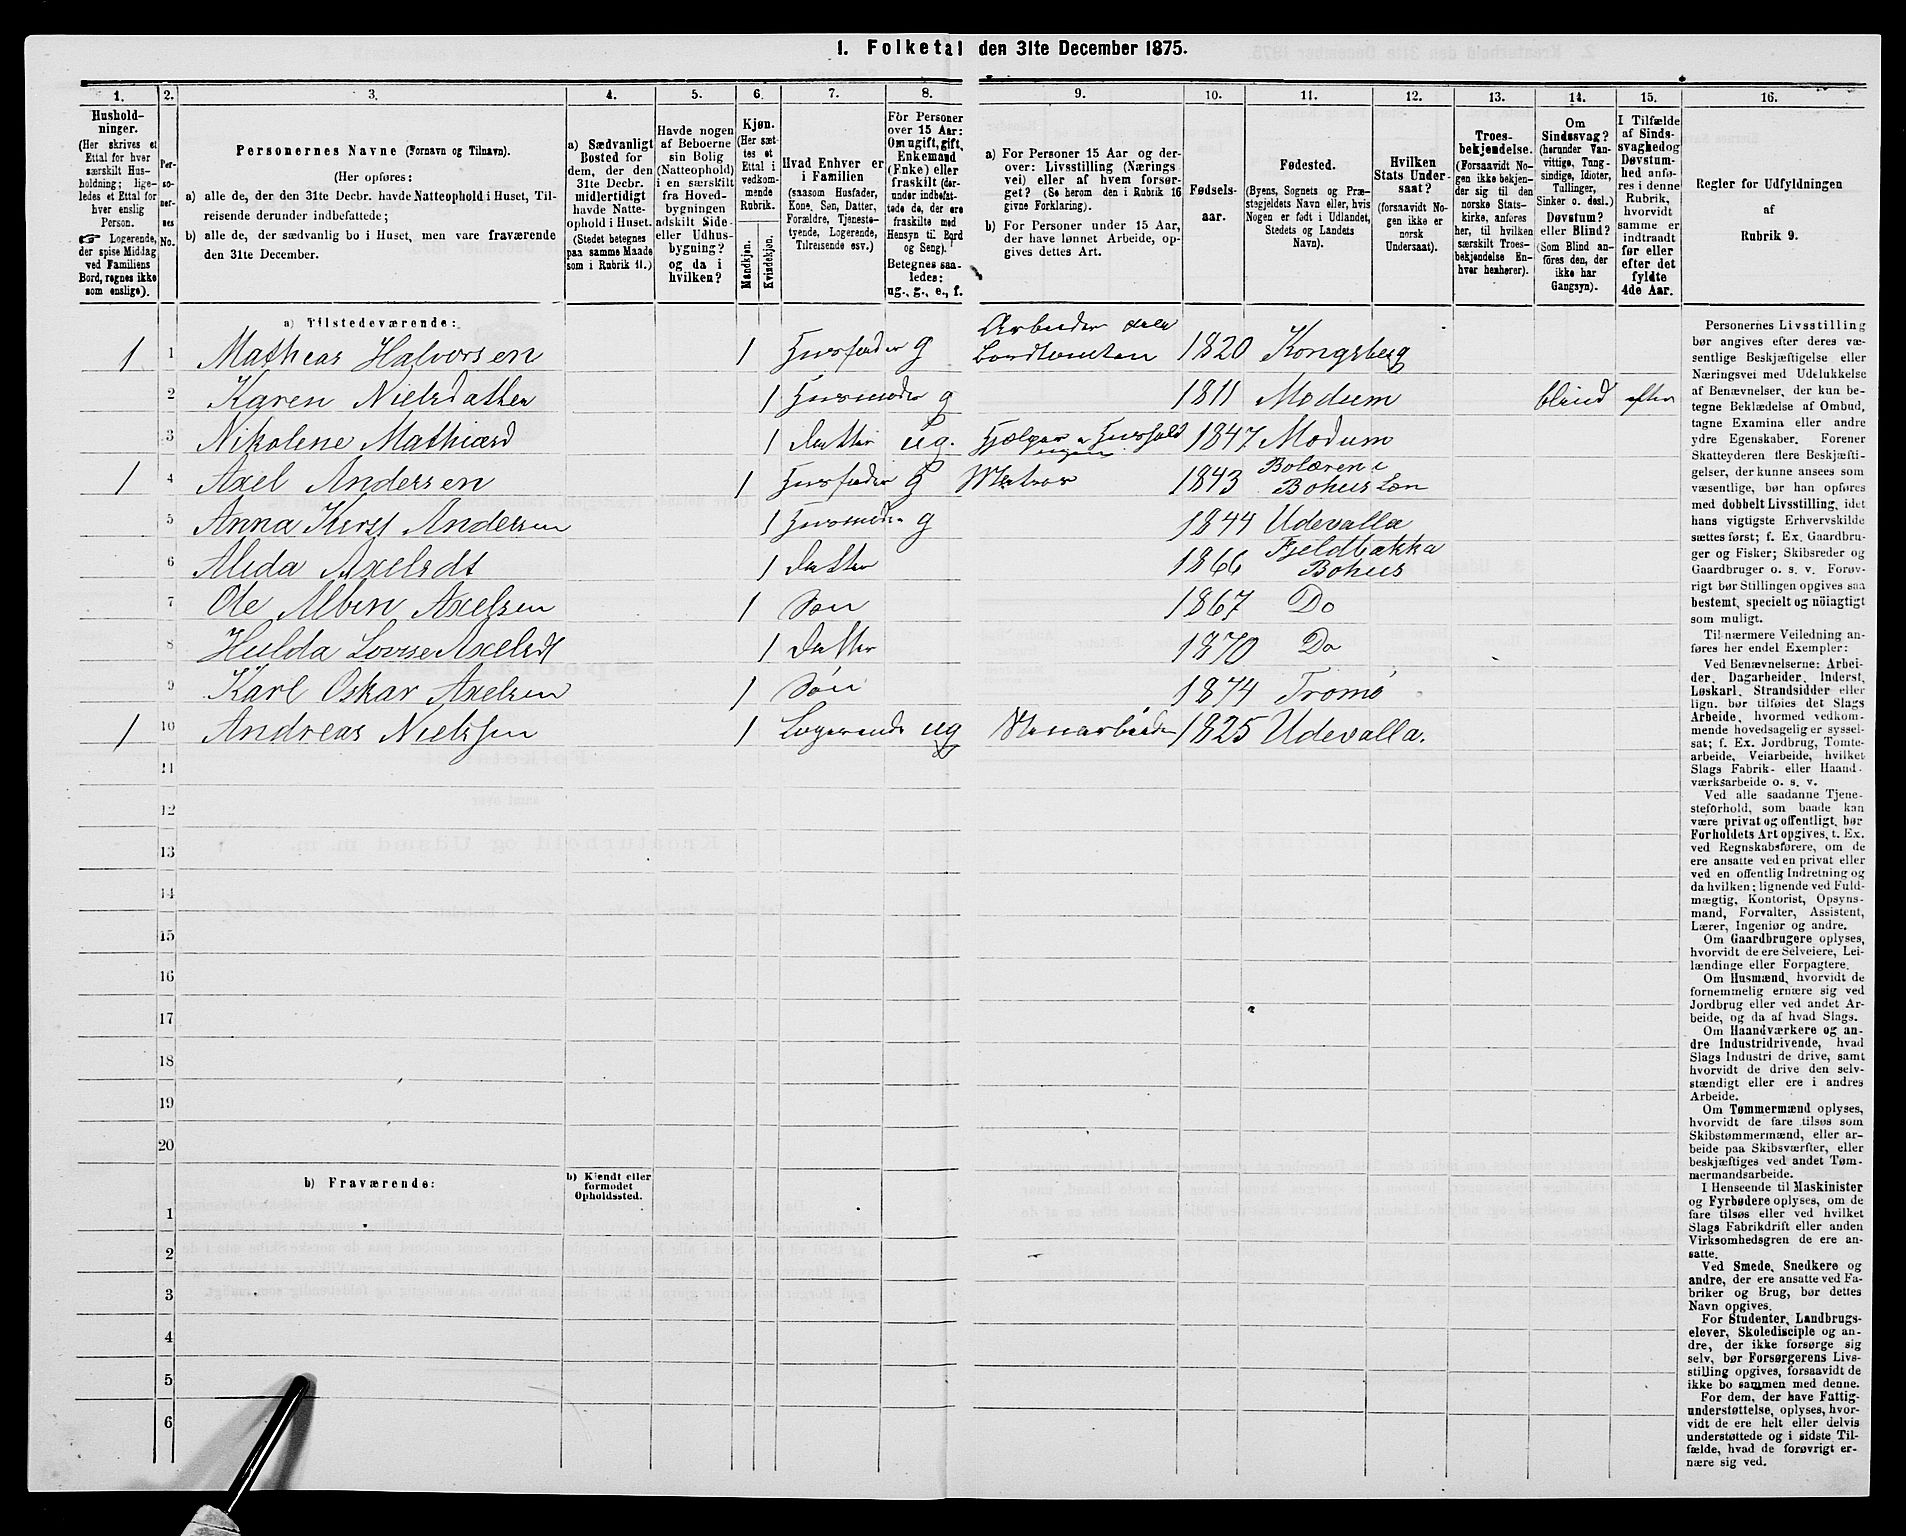 1. Folketal den 31te December 1875.
1. 2. 3. 4. 5. 6. 7. 8. 9. 10. 11. 12. 13. 14. 15. 16.
Hushold-
ninger.
(Her skrives et
Ettal for hver
særskilt Hus-
holdning; lige-
ledes et Ettal for
hver enslig
Person.
☞ Logerende,
der spise Middag
ved Familiens
Bord, regnes ikke
som enslige).
Per-
so-
ner-
nes
No.
Personernes Navne (Fornavn og Tilnavn).
(Her opføres:
a) alle de, der den 31te Decbr. havde Natteophold i Huset, Til-
reisende derunder indbefattede;
b) alle de, der sædvanlig bo i Huset, men vare fraværende
den 31te December.
a) Sædvanligt
Bosted for
dem, der den
31te Decbr.
midlertidigt
havde Natte-
ophold i Huset.
(Stedet betegnes
paa samme Maade
som i Rubrik 11.)
Havde nogen
af Beboerne
sin Bolig
(Natteophold)
i en særskilt
fra Hoved-
bygningen
adskilt Side-
eller Udhus-
bygning?
og da i
hvilken?
Kjøn.
(Her sæt-
tes et
Ettal i
vedkom-
mende
Rubrik.
Mandkjøn.
Kvindekjøn.
Hvad Enhver er
i Familien
(saasom Husfader,
Kone, Søn, Datter,
Forældre, Tjeneste-
tyende, Logerende,
Tilreisende osv.)
For Personer
over 15 Aar:
Om ugift, gift,
Enkemand
(Enke) eller
fraskilt (der-
under indbefat-
tede de, der ere
fraskilte med
Hensyn til Bord
og Seng).
Betegnes saa-
ledes:
ug., g., e., f.
a) For Personer 15 Aar og der-
over: Livsstilling (Nærings-
vei) eller af hvem forsør-
get? (Se herom den i Rubrik 16
givne Forklaring).
b) For Personer under 15 Aar,
der have lønnet Arbeide, op-
gives dettes Art.
Fødsels-
aar.
Fødested.
(Byens, Sognets og Præ-
stegjeldets Navn eller, hvis
Nogen er født i Udlandet,
Stedets og Landets
Navn).
Hvilken
Stats Under-
saat?
(forsaavidt No-
gen ikke er
norsk
Undersaat).
Troes-
bekjendelse.
(Forsaavidt No-
gen ikke bekjen-
der sig til den
norske Stats-
kirke, anføres
her, til hvilken
særskilt Troes-
bekjendelse En-
hver henhører).
Om
Sindssvag?
(herunder Van-
vittige, Tung-
sindige, Idioter,
Tullinger,
Sinker o. desl.)
Døvstum?
eller Blind?
(Som Blind an-
føres den, der
ikke har
Gangsyn).
I Tilfælde
af Sinds-
svaghed og
Døvstum-
hed anfø-
res i denne
Rubrik,
hvorvidt
samme er
indtraadt
før eller
efter det
fyldte
4de Aar.
Regler for Udfyldningen
af
Rubrik 9.
a) Tilstedeværende:
1 1 Mathias Halvorsen 1 Husfader g Arbeider Bordtomten 1820 Kongsberg
2 Karen Nielsdatter 1 Husmoder g 1811 Modum blind efter
3 Nikolene Mathiasd 1 Datter ug. Hjælper i Husholdningen 1847 Modum
1 4 Axel Andersen 1 Husfader G Matros 1843 Bolæren i Bohus Len
5 Anna Kirst Andersen 1 Husmoder g 1844 Udevalla
6 Alida Axelsdt 1 Datter 1866 Fjeldbakka Bohus
7 Ole Albin Axelsen 1 Søn 1867 Do
8 Hulda Lovise Axelsdt 1 Datter 1870 Do
9 Karl Oskar Axelsen 1 Søn 1874 Tromø
1 10 Andreas Nielsen 1 Logerende ug Stenarbeider 1825 Udevalla.
11
12
13
14
15
16
17
18
19
20
b) Fraværende:
b) Kjendt eller
formodet
Opholdssted.
1
2
3
4
5
6
Personernes Livsstilling
bør angives efter deres væ-
sentlige Beskjæftigelse eller
Næringsvei med Udelukkelse
af Benævnelser, der kun be-
tegne Beklædelse af Ombud,
tagne Examina eller andre
ydre Egenskaber. Forener
Skatteyderen flere Beskjæfti-
gelser, der kunne ansees som
væsentlige, bør han opføres
med dobbelt Livsstilling, idet
hans vigtigste Erhvervskilde
sættes først; f. Ex. Gaardbru-
ger og Fisker; Skibsreder og
Gaardbruger o. s. v. Forøv-
rigt bør Stillingen opgives saa
bestemt, specielt og nöiagtigt
som muligt.
Til nærmere Veiledning an-
føres her endel Exempler:
Ved Benævnelserne: Arbei-
der, Dagarbeider, Inderst,
Løskarl, Strandsidder eller
lign. bør tilføies det Slags
Arbeide, hvormed vedkom-
mende hovedsagelig er syssel-
sat; f. Ex. Jordbrug, Tomte-
arbeide, Veiarbeide, hvilket
Slags Fabrik- eller Haand-
værksarbeide o. s. v.
Ved alle saadanne Tjene-
steforhold, som baade kan
være privat og offentligt, bør
Forholdets Art opgives, t. Ex.
ved Regnskabsførere, om de
ere ansatte ved en privat eller
ved en offentlig Indretning og
da hvilken; lignende ved Fuld-
mægtig, Kontorist, Opsyns-
mand, Forvalter, Assistent,
Lærer, Ingeniør og andre.
Om Gaardbrugere oplyses,
hvorvidt de ere Selveiere, Lei-
lændinge eller Forpagtere.
Om Husmænd, hvorvidt de
fornemmelig ernære sig ved
Jordbrug eller ved andet Ar-
beide, og da af hvad Slags.
Om Haandværkere og an-
dre Industridrivende, hvad
Slags Industri de drive, samt
hvorvidt de drive den selv-
stændigt eller ere i andres
Arbeide.
Om Tømmermænd oplyses,
hvorvidt de fare tilsøs som
Skibstømmermænd, eller ar-
beide paa Skibsværfter, eller
beskjæftiges ved andet Tøm-
mermandsarbeide.
I Henseende til Maskinister
og Fyrbødere oplyses, om de
fare tilsøs eller ved hvilket
Slags Fabrikdrift eller anden
Virksomhedsgren de ere an-
satte.
Ved Smede, Snedkere og
andre, der ere ansatte ved Fa-
briker og Brug, bør dettes
Navn opgives.
For Studenter, Landbrugs-
elever, Skoledisciple og an-
dre, der ikke forsørge sig
selv, bør Forsørgerens Livs-
stilling opgives, forsaavidt de
ikke bo sammen med denne.
For dem, der have Fattig-
understøttelse, oplyses, hvor-
vidt de ere helt eller delvis
understøttede og i sidste Til-
fælde, hvad de forøvrigt er-
nære sig ved.